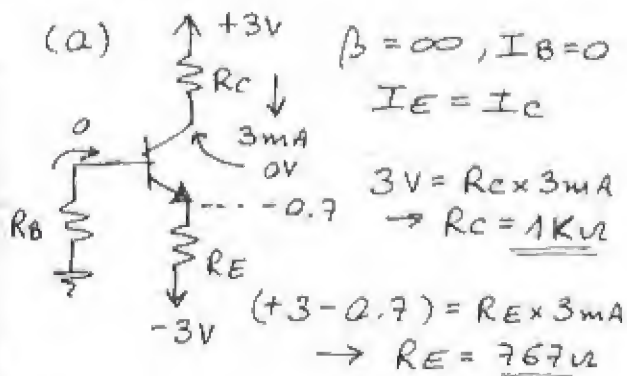 (a)
+3V
RC
3mA
0
0V
RB
-0.7
RE
-3V
β = ∞, IB = 0
IE = IC
3V = RC x 3mA
→ RC = 1KΩ
(+3 - 0.7) = RE x 3mA
→ RE = 767Ω